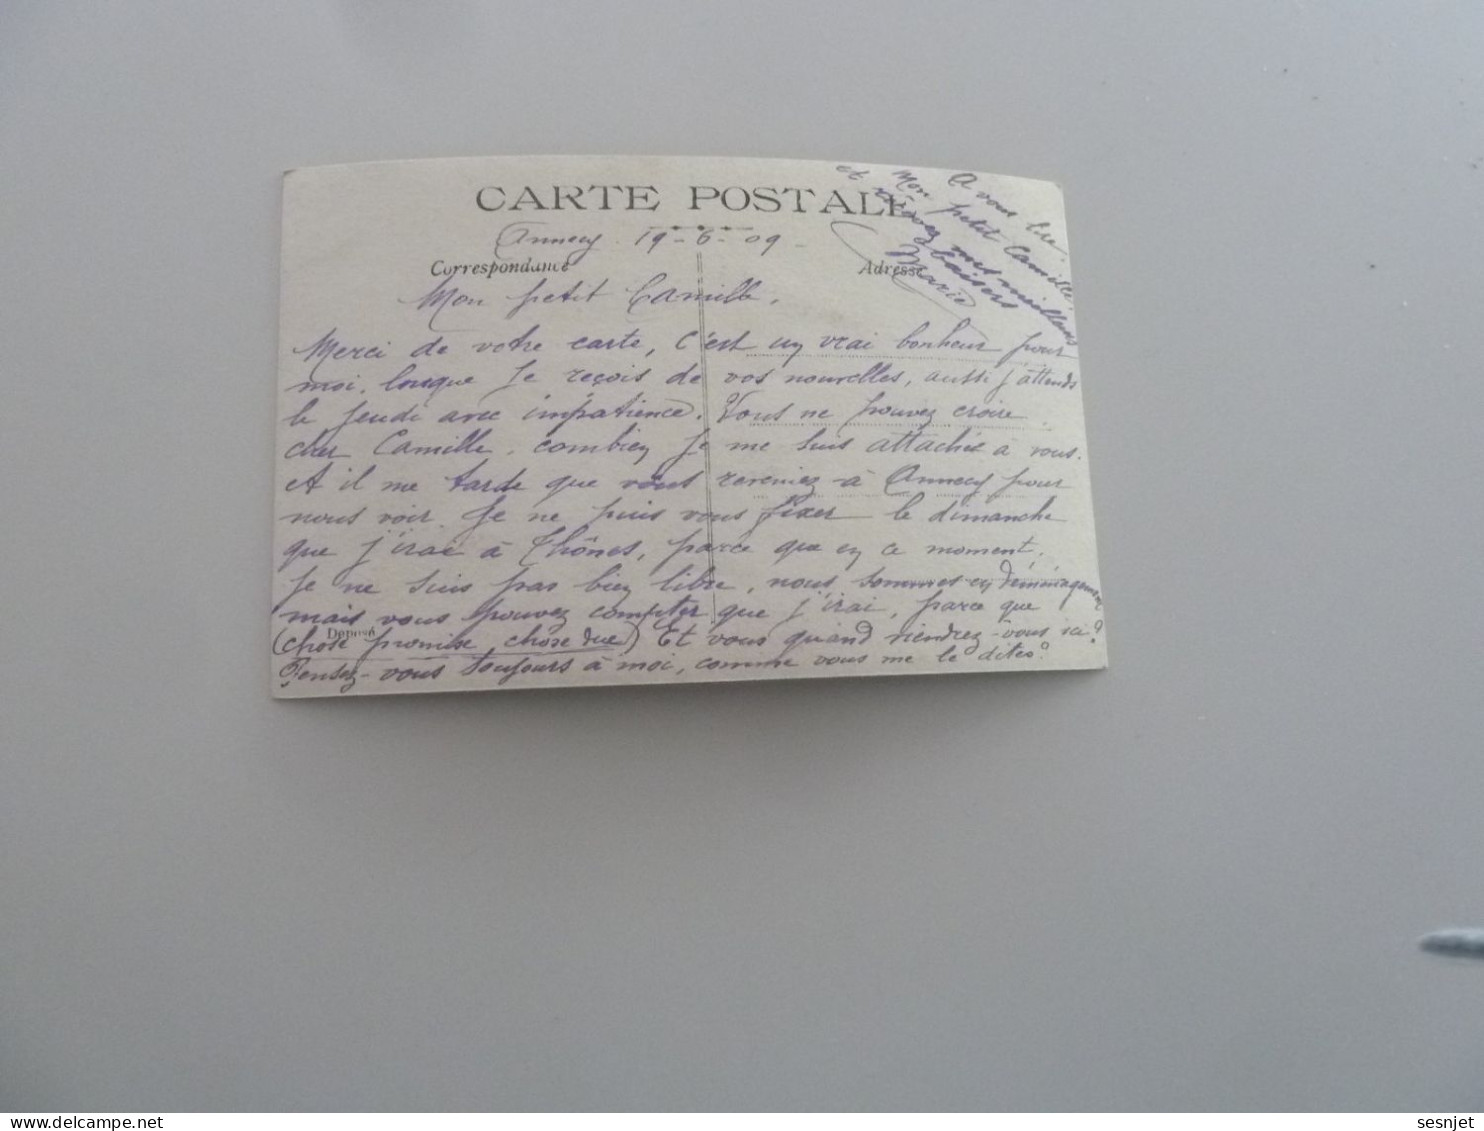 CARTE POSTALE
Annecy. 19-6-09-
Correspondance
Adresse
Mon petit Camille,
Merci de votre carte, c'est un vrai bonheur pour
moi, lorsque je reçois de vos nouvelles, aussi j'attends
le jeudi avec impatience. Vous ne pouvez croire
cher Camille, combien je me suis attachée à vous.
Et il me tarde que vous reveniez à Annecy pour
nous voir. Je ne puis vous fixer le dimanche
que j'irai à Thônes, parce que en ce moment,
je ne suis pas bien libre, nous sommes en déménagement
mais vous pouvez compter que j'irai, parce que
Déposé
(chose promise, chose due) Et vous quand viendrez-vous ici?
Pensez-vous toujours à moi, comme vous me le dites?
A vous lire.
Mon petit Camille,
et recevez mes meilleurs
baisers
Marie
sesnjet